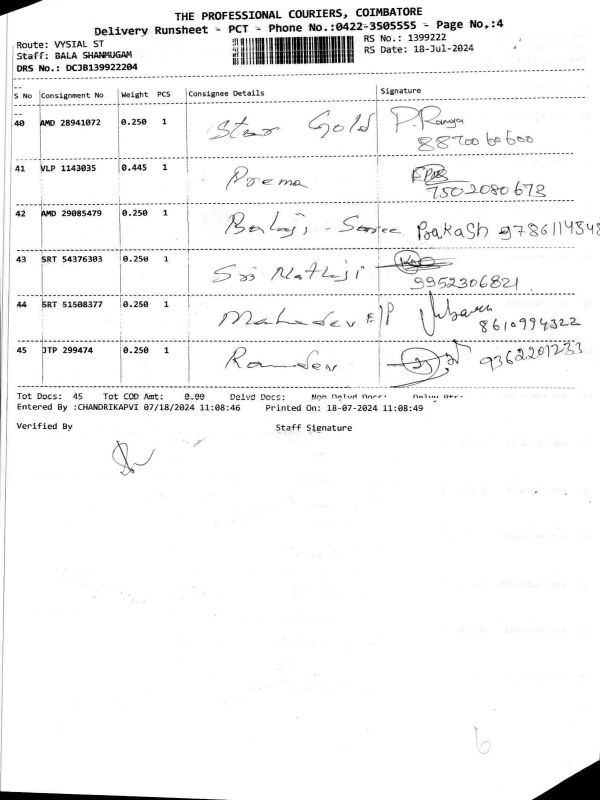 THE PROFESSIONAL COURIERS, COIMBATORE
Delivery Runsheet - PCT - Phone No.:0422-3505555 - Page No.:4
Route: VYSIAL ST RS No.: 1399222
Staff: BALA SHANMUGAM RS Date: 18-Jul-2024
DRS No.: DCJB139922204
S No Consignment No Weight PCS Consignee Details Signature
40 AMD 28941072 0.250 1 Star Gold P. Ranga
8870060600
41 VLP 1143035 0.445 1 Prema
7502080673
42 AMD 29085479 0.250 1 Balaji - Saree Prakash 9786114548
43 SRT 54376303 0.250 1 Sri Mathaji
9952306821
44 SRT 51508377 0.250 1 Mahadev E/P
8610994322
45 JTP 299474 0.250 1 Ramdev 9362201233
Tot Docs: 45 Tot COD Amt: 0.00 Delvd Docs: Non Delvd Docs:
Entered By :CHANDRIKAPVI 07/18/2024 11:08:46 Printed On: 18-07-2024 11:08:49
Verified By Staff Signature
6